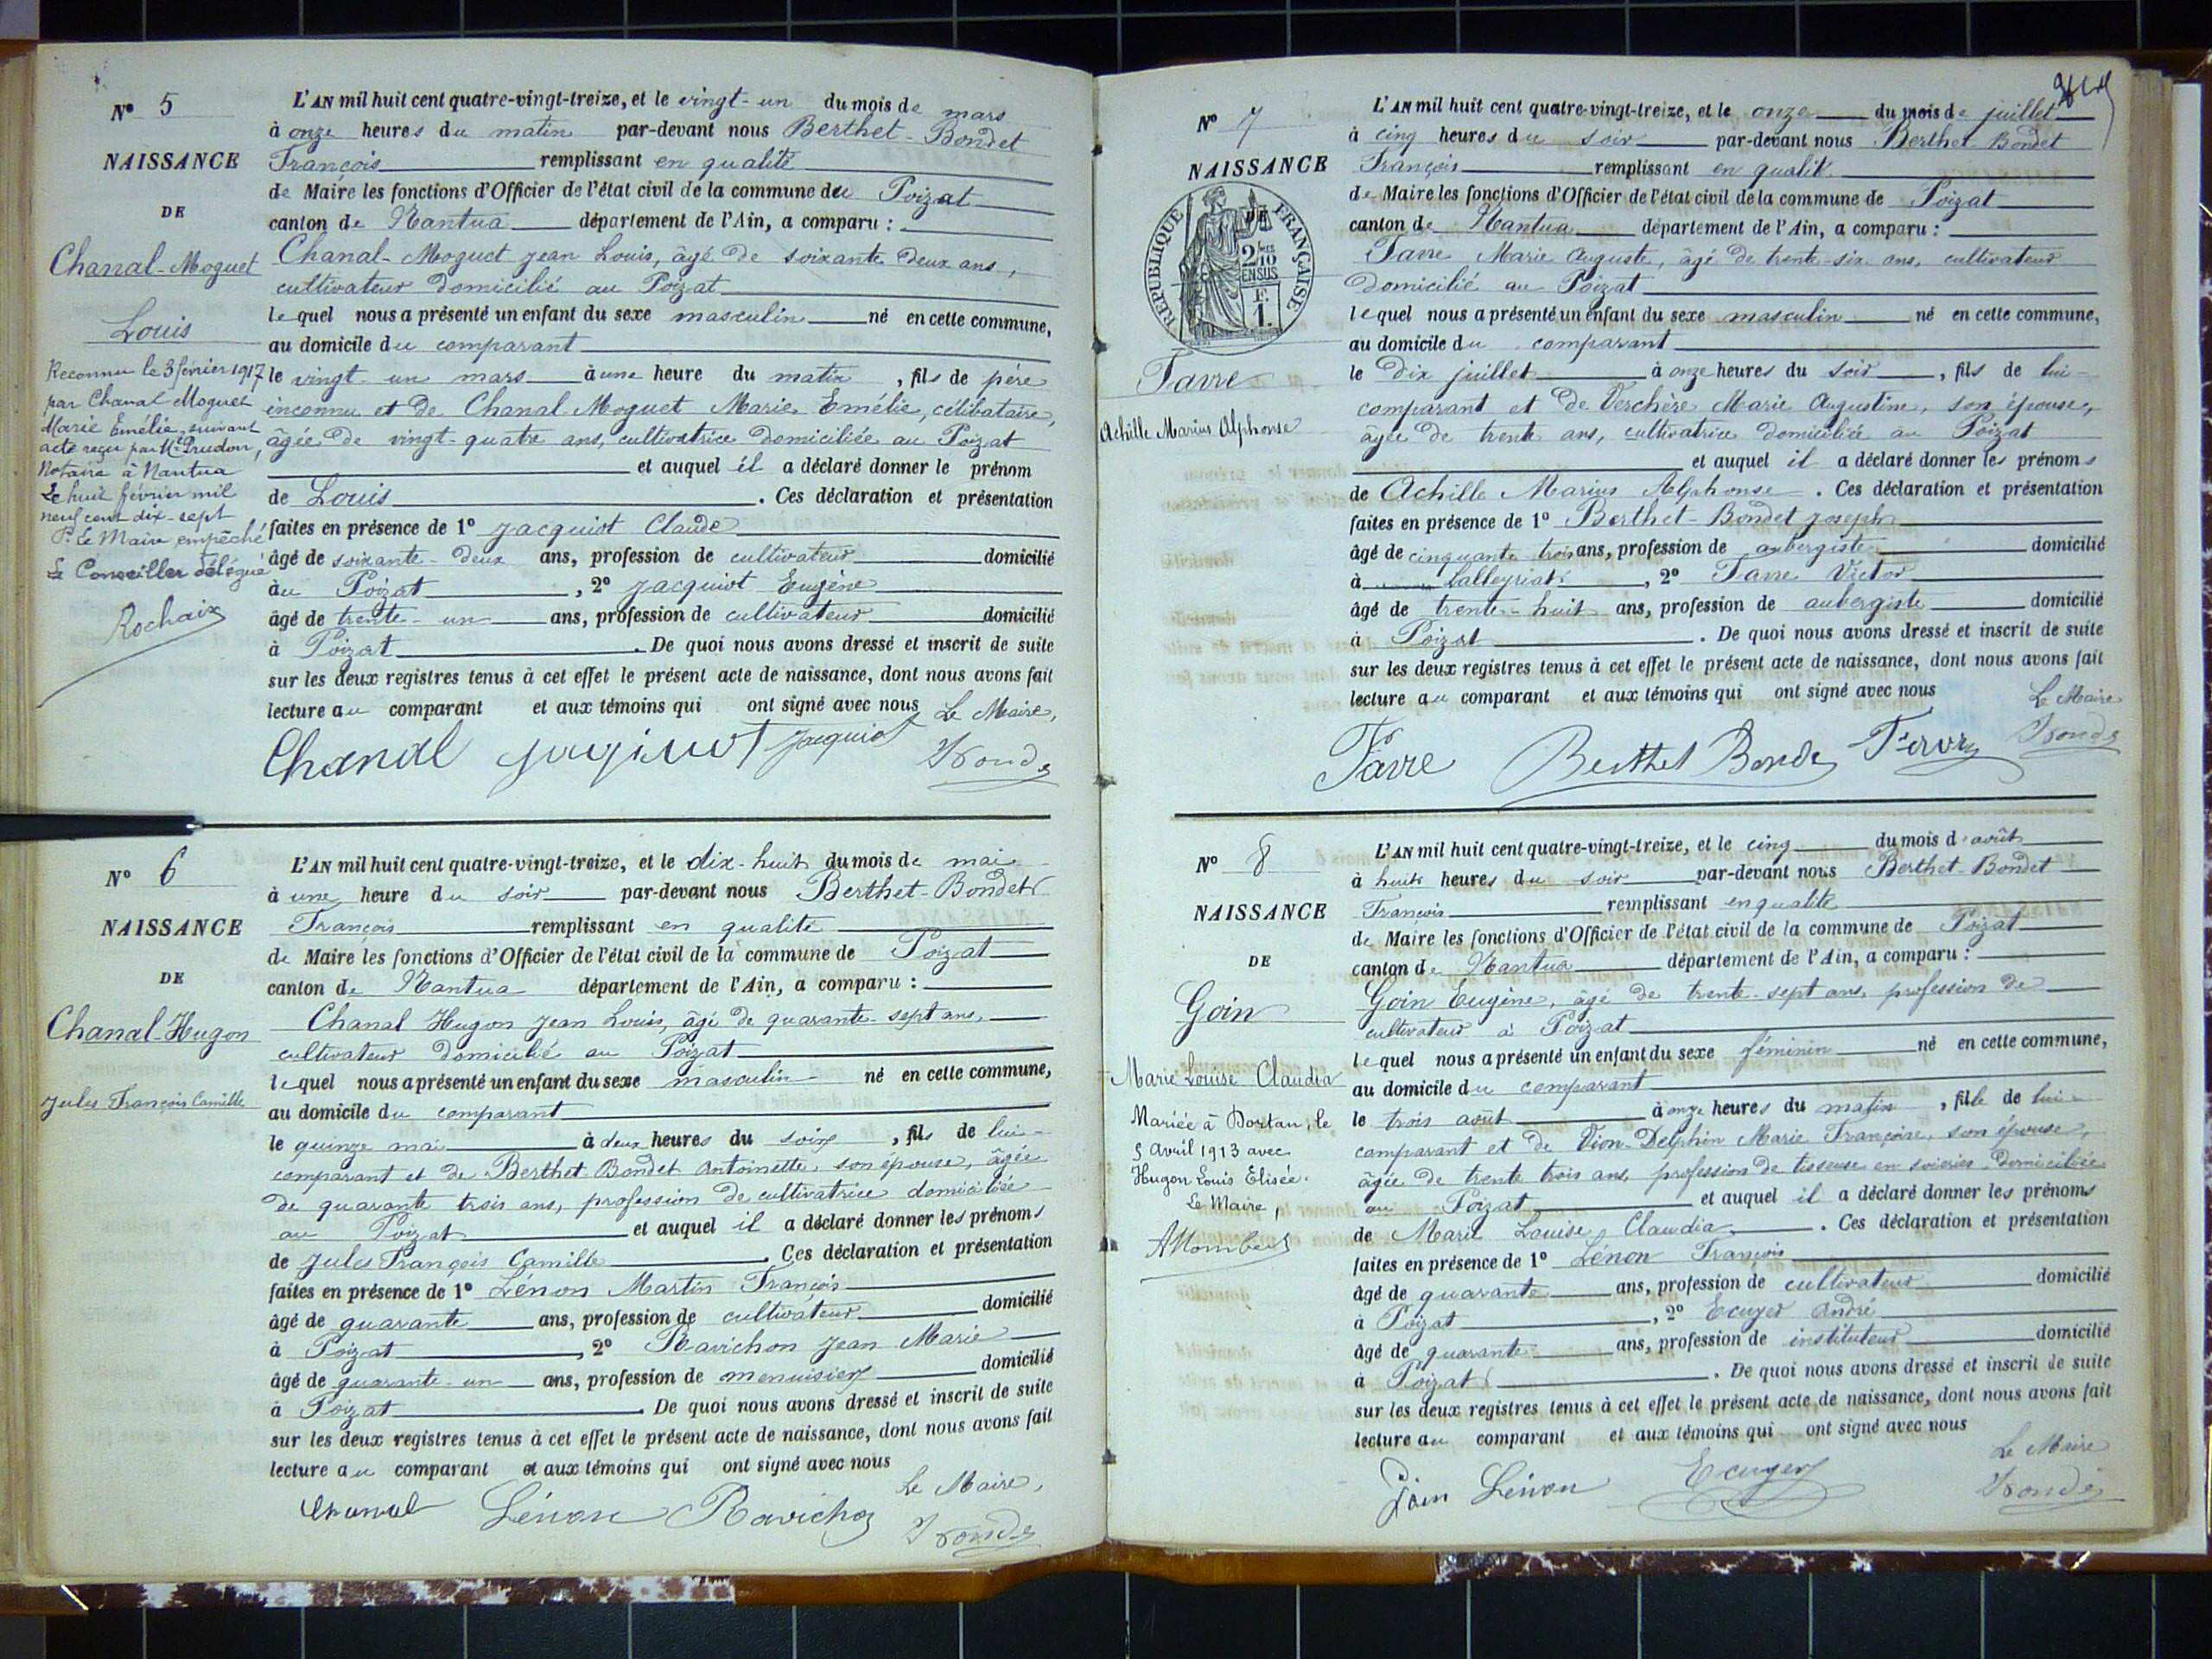 N° 5
NAISSANCE
DE
Chanal-Moguet
Louis
Reconnu le 3 février 1917
par Chanal Moguet
Marie Emélie, suivant
acte reçu par Me Prudon,
Notaire à Nantua
Le huit février mil
neuf cent dix-sept
P. Le Maire empêché
Le Conseiller délégué
Rochaix
L'AN mil huit cent quatre-vingt-treize, et le vingt-un du mois de mars
à onze heures du matin par-devant nous Berthet-Bondet
François remplissant en qualité
de Maire les fonctions d'Officier de l'état civil de la commune du Poizat
canton de Nantua département de l'Ain, a comparu :
Chanal-Moguet Jean Louis, âgé de soixante deux ans,
cultivateur domicilié au Poizat
lequel nous a présenté un enfant du sexe masculin né en cette commune,
au domicile du comparant
le vingt un mars à une heure du matin, fils de père
inconnu et de Chanal Moguet Marie Emélie, célibataire,
âgée de vingt-quatre ans, cultivatrice domiciliée au Poizat
et auquel il a déclaré donner le prénom
de Louis. Ces déclaration et présentation
faites en présence de 1° Jacquiot Claude
âgé de soixante-deux ans, profession de cultivateur domicilié
au Poizat, 2° Jacquiot Eugène
âgé de trente-un ans, profession de cultivateur domicilié
à Poizat. De quoi nous avons dressé et inscrit de suite
sur les deux registres tenus à cet effet le présent acte de naissance, dont nous avons fait
lecture au comparant et aux témoins qui ont signé avec nous
Le Maire,
Chanal Jacquiot Jacquiot
N° 6
NAISSANCE
DE
Chanal-Hugon
Jules François Camille
L'AN mil huit cent quatre-vingt-treize, et le dix-huit du mois de mai
à une heure du soir par-devant nous Berthet-Bondet
François remplissant en qualité
de Maire les fonctions d'Officier de l'état civil de la commune de Poizat
canton de Nantua département de l'Ain, a comparu :
Chanal Hugon Jean Louis, âgé de quarante-sept ans,
cultivateur domicilié au Poizat
lequel nous a présenté un enfant du sexe masculin né en cette commune,
au domicile du comparant
le quinze mai à deux heures du soir, fils de lui-
comparant et de Berthet Bondet Antoinette, son épouse, âgée
de quarante trois ans, profession de cultivatrice domiciliée
au Poizat et auquel il a déclaré donner les prénoms
de Jules François Camille. Ces déclaration et présentation
faites en présence de 1° Lénon Martin François
âgé de quarante ans, profession de cultivateur domicilié
à Poizat, 2° Ravichon Jean Marie
âgé de quarante-un ans, profession de menuisier domicilié
à Poizat. De quoi nous avons dressé et inscrit de suite
sur les deux registres tenus à cet effet le présent acte de naissance, dont nous avons fait
lecture au comparant et aux témoins qui ont signé avec nous
Le Maire,
Chanal Lénon Ravichon
N° 7
NAISSANCE
DE
REPUBLIQUE FRANÇAISE
2/10 EN SUS
F. 1.
Favre
Achille Marius Alphonse
L'AN mil huit cent quatre-vingt-treize, et le onze du mois de juillet
à cinq heures du soir par-devant nous Berthet Bondet
François remplissant en qualité
de Maire les fonctions d'Officier de l'état civil de la commune de Poizat
canton de Nantua département de l'Ain, a comparu :
Favre Marie Auguste, âgé de trente-six ans, cultivateur
domicilié au Poizat
lequel nous a présenté un enfant du sexe masculin né en cette commune,
au domicile du comparant
le dix juillet à onze heures du soir, fils de lui-
comparant et de Verchère Marie Augustine, son épouse,
âgée de trente ans, cultivatrice domiciliée au Poizat
et auquel il a déclaré donner les prénoms
de Achille Marius Alphonse. Ces déclaration et présentation
faites en présence de 1° Berthet-Bondet Joseph
âgé de cinquante trois ans, profession de aubergiste domicilié
à Lalleyriat, 2° Favre Victor
âgé de trente-huit ans, profession de aubergiste domicilié
à Poizat. De quoi nous avons dressé et inscrit de suite
sur les deux registres tenus à cet effet le présent acte de naissance, dont nous avons fait
lecture au comparant et aux témoins qui ont signé avec nous
Le Maire
Favre Berthet Bondet
N° 8
NAISSANCE
DE
Goin
Marie Louise Claudia
Mariée à Dortan, le
5 Avril 1913 avec
Hugon Louis Elisée.
Le Maire,
L'AN mil huit cent quatre-vingt-treize, et le cinq du mois d'août
à huit heures du soir par-devant nous Berthet-Bondet
François remplissant en qualité
de Maire les fonctions d'Officier de l'état civil de la commune de Poizat
canton de Nantua département de l'Ain, a comparu :
Goin Eugène, âgé de trente-sept ans, profession de
cultivateur à Poizat
lequel nous a présenté un enfant du sexe féminin né en cette commune,
au domicile du comparant
le trois août à onze heures du matin, fille de lui-
comparant et de Vion-Delphin Marie Françoise, son épouse,
âgée de trente trois ans, profession de tisseuse en soieries domiciliée
au Poizat et auquel il a déclaré donner les prénoms
de Marie Louise Claudia. Ces déclaration et présentation
faites en présence de 1° Lénon François
âgé de quarante ans, profession de cultivateur domicilié
à Poizat, 2° Ecuyer André
âgé de quarante ans, profession de instituteur domicilié
à Poizat. De quoi nous avons dressé et inscrit de suite
sur les deux registres tenus à cet effet le présent acte de naissance, dont nous avons fait
lecture au comparant et aux témoins qui ont signé avec nous
Le Maire
Goin Lénon Ecuyer